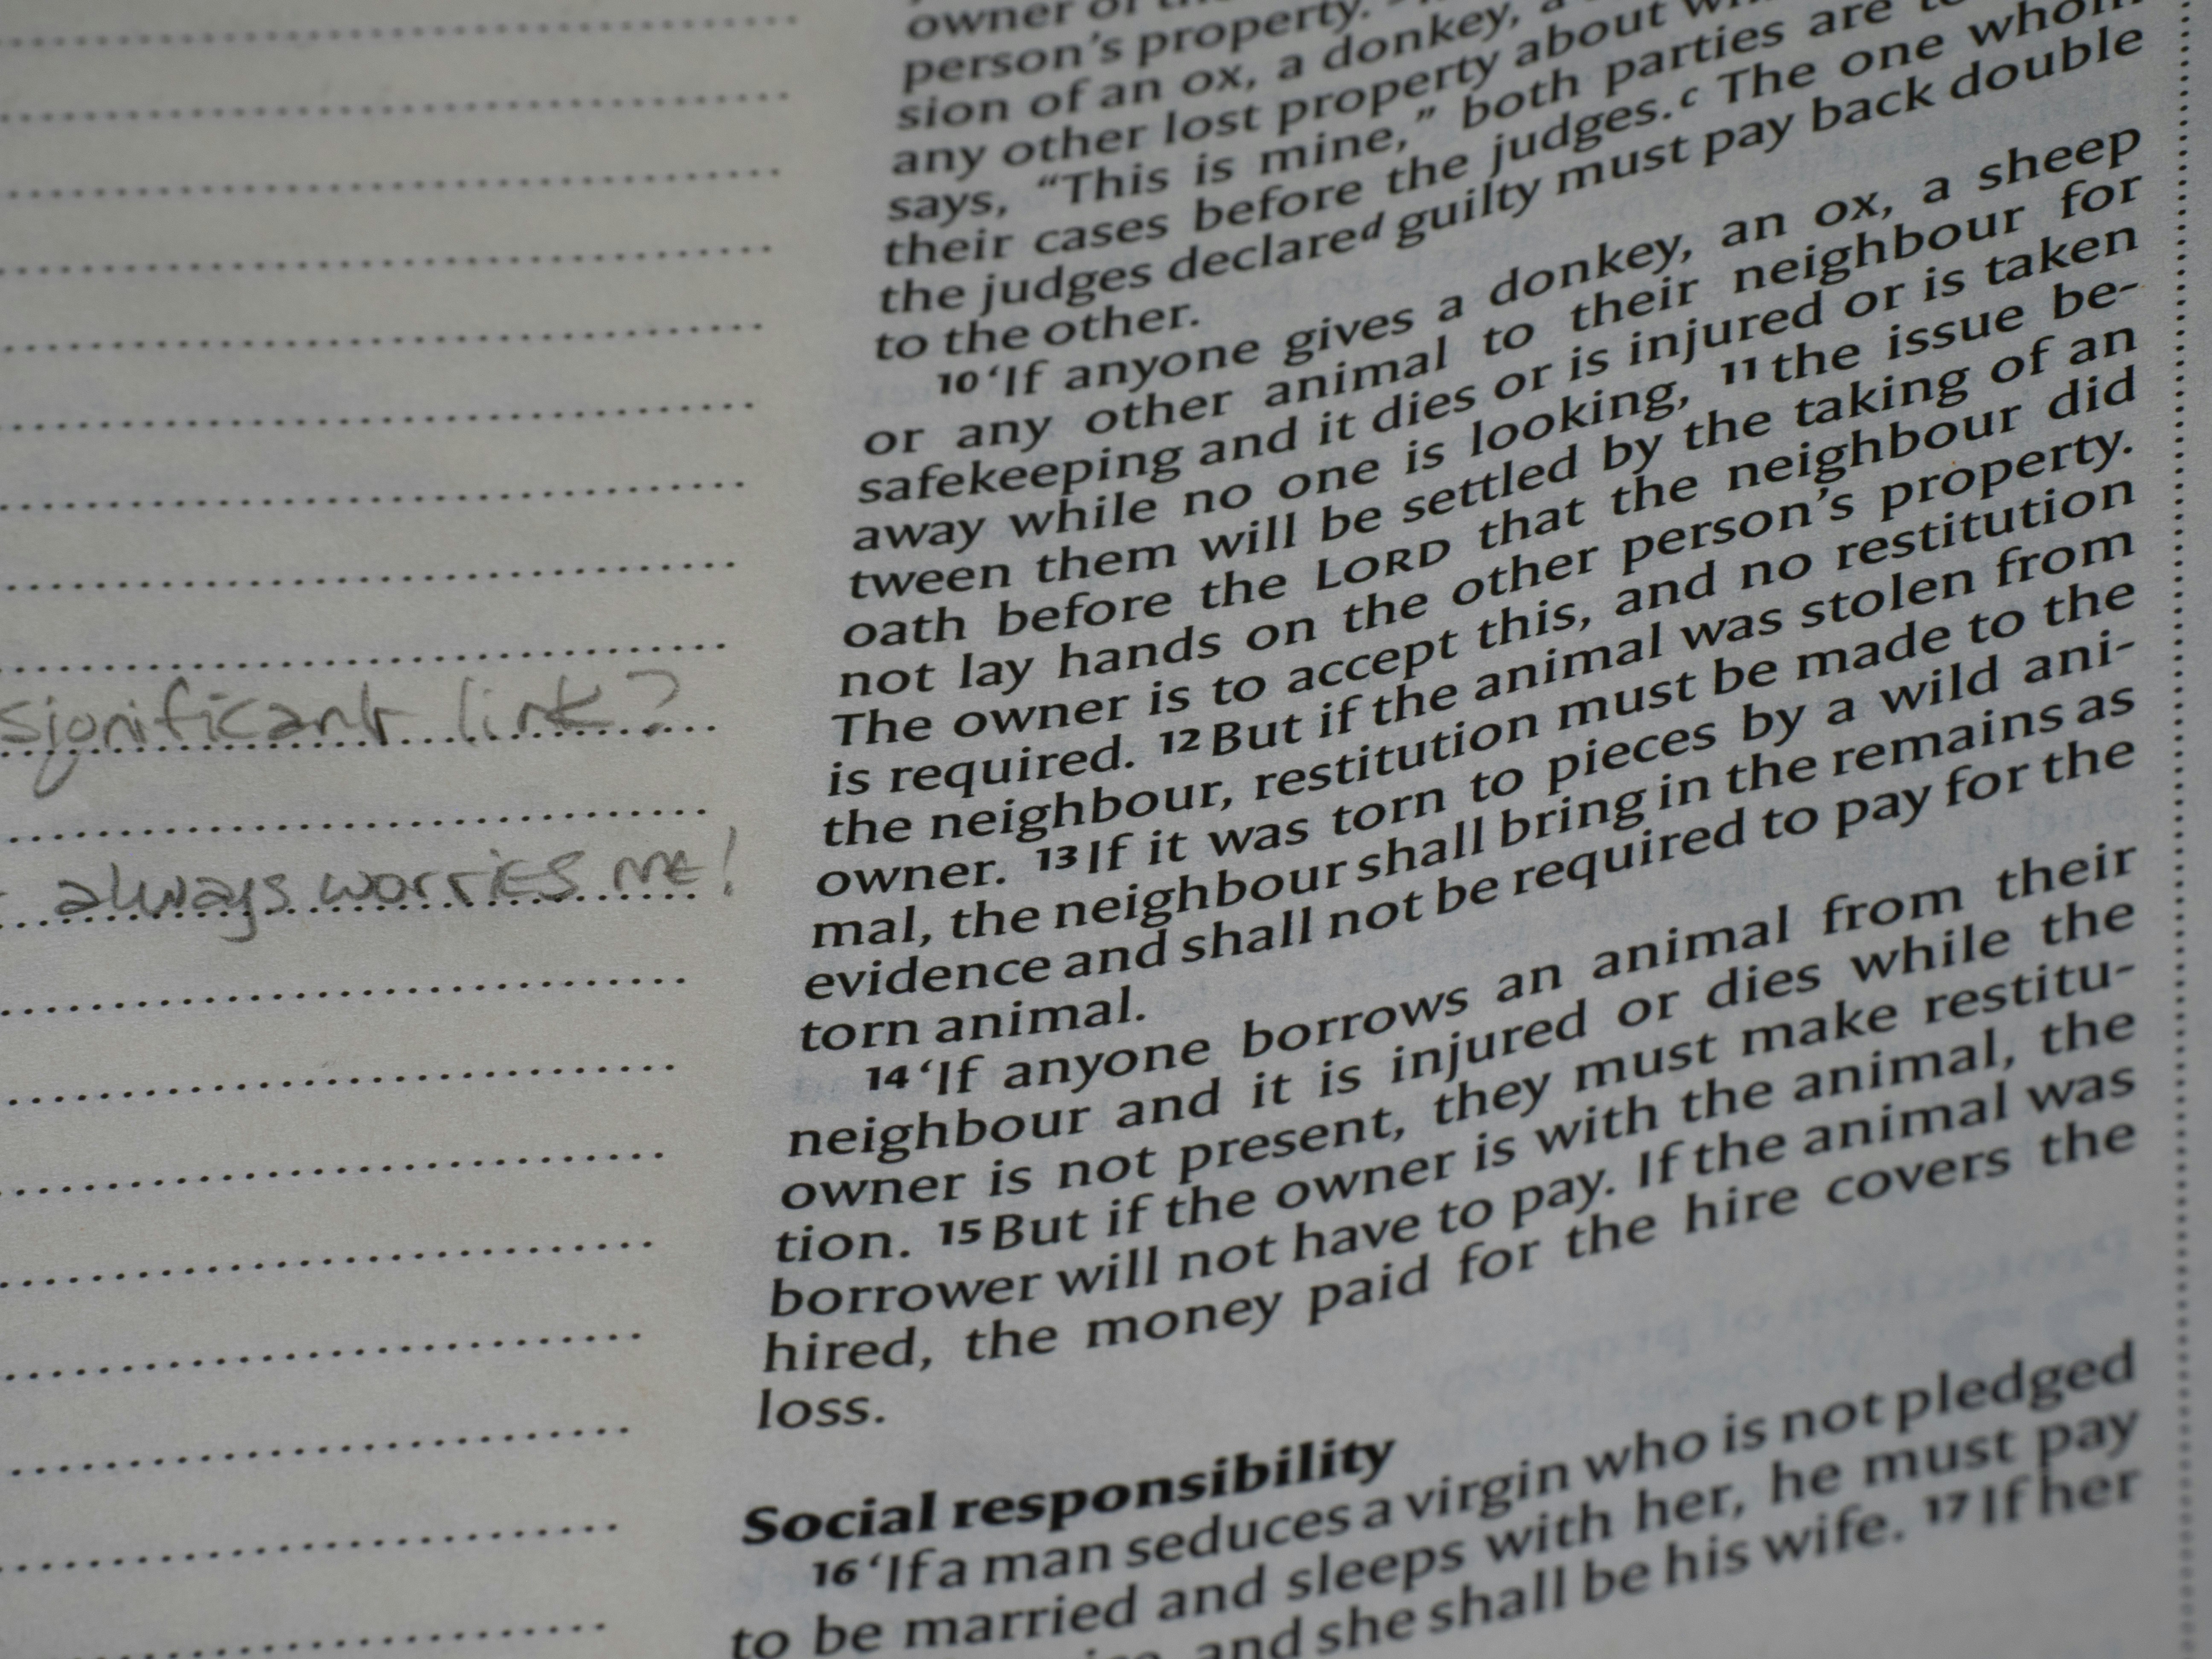 significant link?
always worries me!
owner of
person's property.
sion of an ox, a donkey,
any other lost property about
says, “This is mine,” both parties are
their cases before the judges.c The one whom
the judges declared guilty must pay back double
to the other.
10 ‘If anyone gives a donkey, an ox, a sheep
or any other animal to their neighbour for
safekeeping and it dies or is injured or is taken
away while no one is looking, 11 the issue be-
tween them will be settled by the taking of an
oath before the LORD that the neighbour did
not lay hands on the other person’s property.
The owner is to accept this, and no restitution
is required. 12 But if the animal was stolen from
the neighbour, restitution must be made to the
owner. 13 If it was torn to pieces by a wild ani-
mal, the neighbour shall bring in the remains as
evidence and shall not be required to pay for the
torn animal.
14 ‘If anyone borrows an animal from their
neighbour and it is injured or dies while the
owner is not present, they must make restitu-
tion. 15 But if the owner is with the animal, the
borrower will not have to pay. If the animal was
hired, the money paid for the hire covers the
loss.
Social responsibility
16 ‘If a man seduces a virgin who is not pledged
to be married and sleeps with her, he must pay
and she shall be his wife. 17 If her